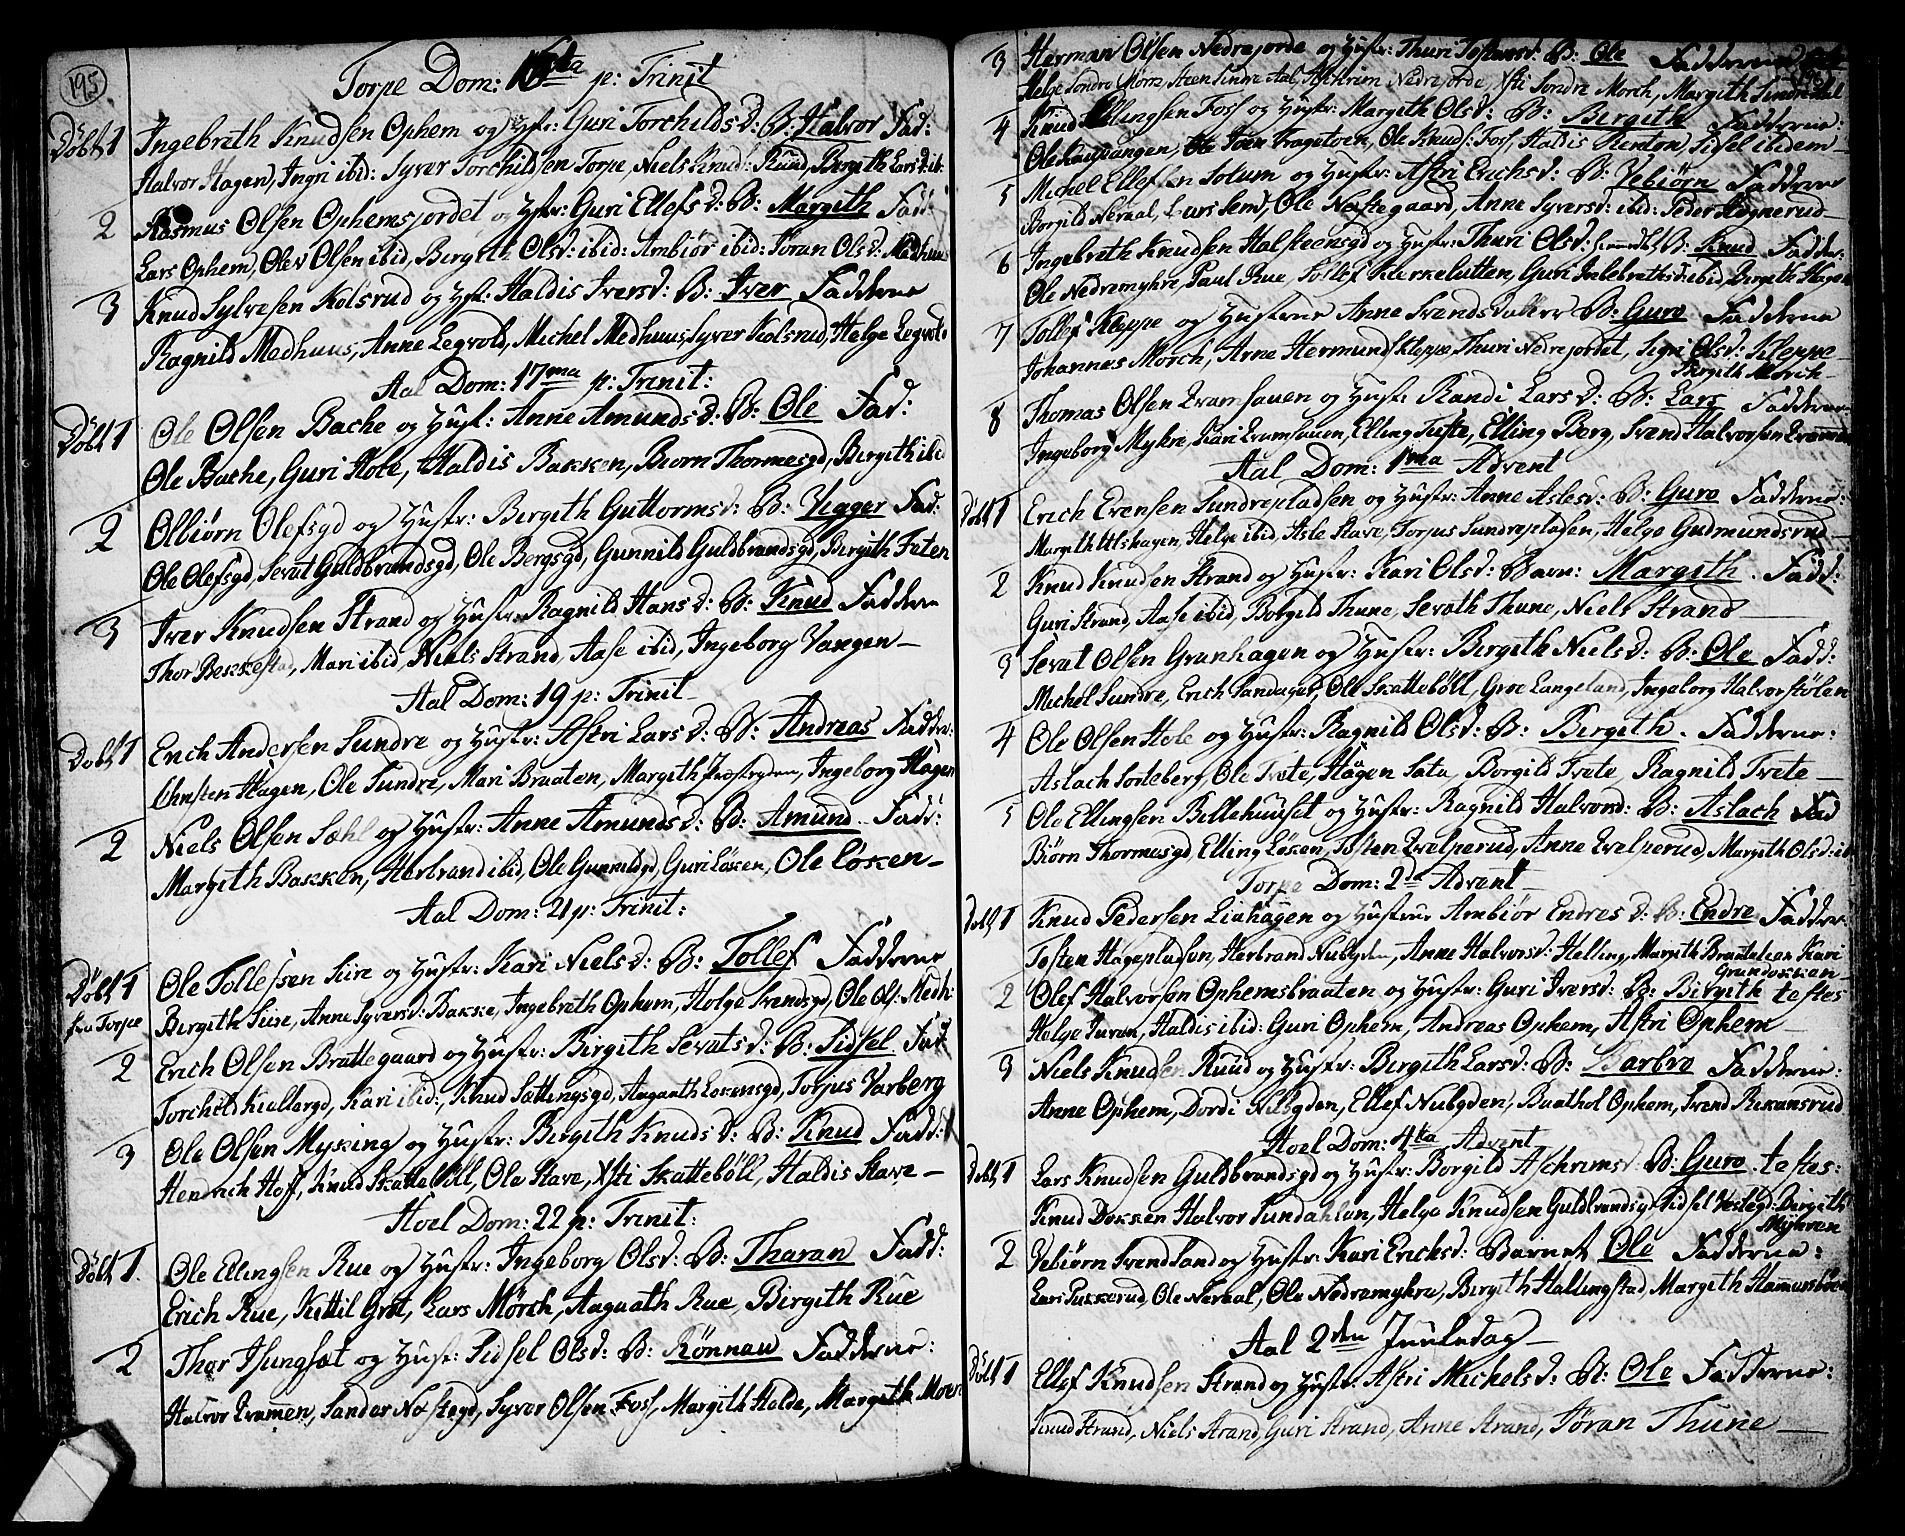 195
Torpe Dom: 16ta p: Trinit
Døbt 1 Ingebreth Knudsen Ophem og Hstr: Guri Torchilds d: B: Halvor Fad:
Halvor Hagen, Ingri ibid: Syver Torchildsen Torpe, Niels Knuds: Ruud, Bergith Lars d: ib:
2 Rasmus Olsen Ophemsjordet og Hstr: Guri Ellefs d: B: Margith Fad:
Lars Ophem, Olev Olsen ibid, Bergith Ols d: ibid: Ambiør ibid: Jöran Ols d: Medhuus
3 Knud Sylvesen Kolsrud og Hstr: Haldis Ivers d: B: Iver Fadderne
Ragnild Medhuus, Anne Legvold, Michel Medhuus, Syver Kolsrud, Helge Legvold
Aal Dom: 17ma p: Trinit:
Døbt 1 Ole Olsen Bache og Hust: Anne Amunds d: B: Ole Fad:
Ole Bache, Guri Hole, Haldis Bakken, Biørn Thormesgd, Bergith ibid
2 Olbiørn Olefsgd og Hustr: Bergith Guttorms d: B: Vegger Fad:
Ole Olefsgd, Sevat Guldbrandsgd, Ole Bergsgd, Gunnild Guldbrandsgd, Bergith Feten
3 Iver Knudsen Strand og Hustr: Ragnild Hans d: B: Knud Fadderne
Thor Bekkestad, Mari ibid, Niels Strand, Aase ibid, Ingeborg Vangen
Aal Dom: 19 p: Trinit
Døbt 1 Erich Andersen Sundre og Hustr: Astri Lars d: B: Andreas Fadder:
Christen Hagen, Ole Sundre, Mari Braaten, Margith, Ingeborg Hagen
2 Niels Olsen Sæhl og Hustr: Anne Amunds d: B: Amund Fad:
Margith Bakken, Herbrand ibid, Ole Gunnildgd, Guri Løken, Ole Løken
Aal Dom: 21 p: Trinit:
Døbt 1 Ole Tollefsen Seire og Hustr: Kari Niels d: B: Tollef Fadderne
fra Torpe Bergith Seire, Anne Syvers d: Bakke, Ingebreth Ophem, Helge Svendsgd, Ole Ols: Medh:
2 Erich Olsen Brattegaard og Hustr: Birgith Sevats d: B: Sidsel Fad:
Torchild Kiellergd, Kari ibid:, Knud Sættingsgd, Aagaath Løkensgd, Torjus Varberg
3 Ole Olsen Myking og Hustr: Bergith Knuds d: B: Knud Fadd:
Hendrich Hoff, Knud Skattebøll, Ole Stave, Asti Skattebøll, Haldis Stave
Hoel Dom: 22 p: Trinit:
Døbt 1. Ole Ellingsen Rue og Hustr: Ingeborg Ols d: B: Tharan Fadd:
Erich Rue, Kittil Grøt, Lars Mørch, Aagaath Rue, Birgith Rue
2 Thor Isungsæt og Hustr: Sidsel Ols d: B: Rönnau Fadderne:
Halvor Qvamen, Sander Nostegd, Syver Olsen Foss, Margith Halde, Margeth Moen
3 Herman Olsen Nedrejorde og Hustr: Thuri Tostens d: B: Ole Fadderne
Helge Sondre Morch, Steen Sindre Aal, Aschrim Nedrejorde, Asti Sondre Morch, Margith Sindre Aal
4 Knud Ellingsen Foss og Hustr: Margith Ols d: B: Birgith Fadderne:
Ole Kaupangen, Joen Kragetoen, Ole Knuds: Foss, Haldis Renton, Sidsel ibidem
5 Michel Ellefsen Solum og Hustr: Astri Erichs d: B: Vebiørn Fadderne
Borgild Neraal, Lars Semd, Ole Nostegaard, Anne Syvers d: ibid: Peder Høgnerud
6 Ingebreth Knudsen Halsteensgd og Hustr: Thuri Ols d: B: Knud Fadder:
Ole Nedremyhre, Paul Rue, Tollef Kierkeslatten, Guri Inlebraths d: ibid, Bergeth Hagen
7 Tollef Kleppe og Hustrue Anne Svends datter B: Guro Fadderne
Johannes Morch, Arne Hermunds: Kleppe, Thuri Nedrejordet, Sigri Ols d: Kleppe
Bergith Morch
8 Thomas Olsen Qvamsauen og Hustr Randi Lars d: B: Lars Fadderne
Ingeborg Myhre, Kari Qvamsauen, Elling Tufte, Elling Berg, Svend Halvorsen
Aal Dom: 1ma Advent
Døbt 1 Erich Evensen Sundrepladsen og Hustr: Anne Asles d: B: Guro Fadderne:
Margith Utshagen, Helge ibid, Asle Stave, Torjus Sundreplasen, Helge Gudmundsrud
2 Knud Knudsen Strand og Hustr: Kari Ols d: Barn: Margith. Fadd:
Guri Strand, Aase ibid, Borgild Thune, Sevath Thune, Niels Strand
3 Sevat Olsen Granhagen og Hustr: Bergith Niels d: B: Ole Fadd:
Michel Sundre, Erich Sandager, Ole Skattebøll, Groe Langeland, Ingeborg Halvorstølen
4 Ole Olsen Hole og Hustr: Ragnild Ols d: B: Bergith. Fadderne:
Aslach Sodeberg, Ole Trete, Hågen Sata, Borgild Trete, Ragnild Trete
5 Ole Ellingsen Billehuuset og Hustr: Ragnild Halvors d: B: Aslach Fad
Biørn Thormesgd, Elling Løken, Tosten Qvelperud, Anne Qvelperud, Margith Ols d: ib
Torpe Dom: 2da Advent
Døbt 1 Knud Pedersen Liahågen og Hustrue Ambiør Endres d: B: Endre Fadder:
Tosten Hageplassen, Herbrand Nubgden, Anne Halvors d: Helling, Margith Braatelien Kari
Grundokkien
2 Olef Halvorsen Ophemsbraaten og Hustr: Guri Ivers d: B: Birgith testes
Helge Juran, Haldis ibid: Guri Ophem, Andreas Ophem, Astri Ophem
3 Niels Knudsen Ruud og Hustr: Bergith Lars d: B: Barbro Fadderne:
Anne Ophem, Dordi Nubgden, Ellef Nubgden, Baathol Ophem, Svend Rekansrud
Hoel Dom: 4ta Advent
Døbt 1 Lars Knudsen Guldbrandsgd og Hustr: Borgild Aschrims d: B: Guro. testes:
Knud Dokken Halvor Sundahlen, Helge Knudsen Guldbrandsgd Sidsel Vestegd: Birgeth
Myhren
2 Vebiørn Svendsand og Hustr: Kari Erichs d: Barnet Ole Fadderne:
Lars Sukkerud, Ole Neraal, Ole Nedremyhre, Birgith Hallingstad, Margith Hammersbøen
Aal 2den Juuledag
Døbt 1 Ellef Knudsen Strand og Hustr: Astri Michels d: B: Ole Fadderne:
Knud Strand, Niels Strand, Guri Strand, Anne Strand, Jöran Thune